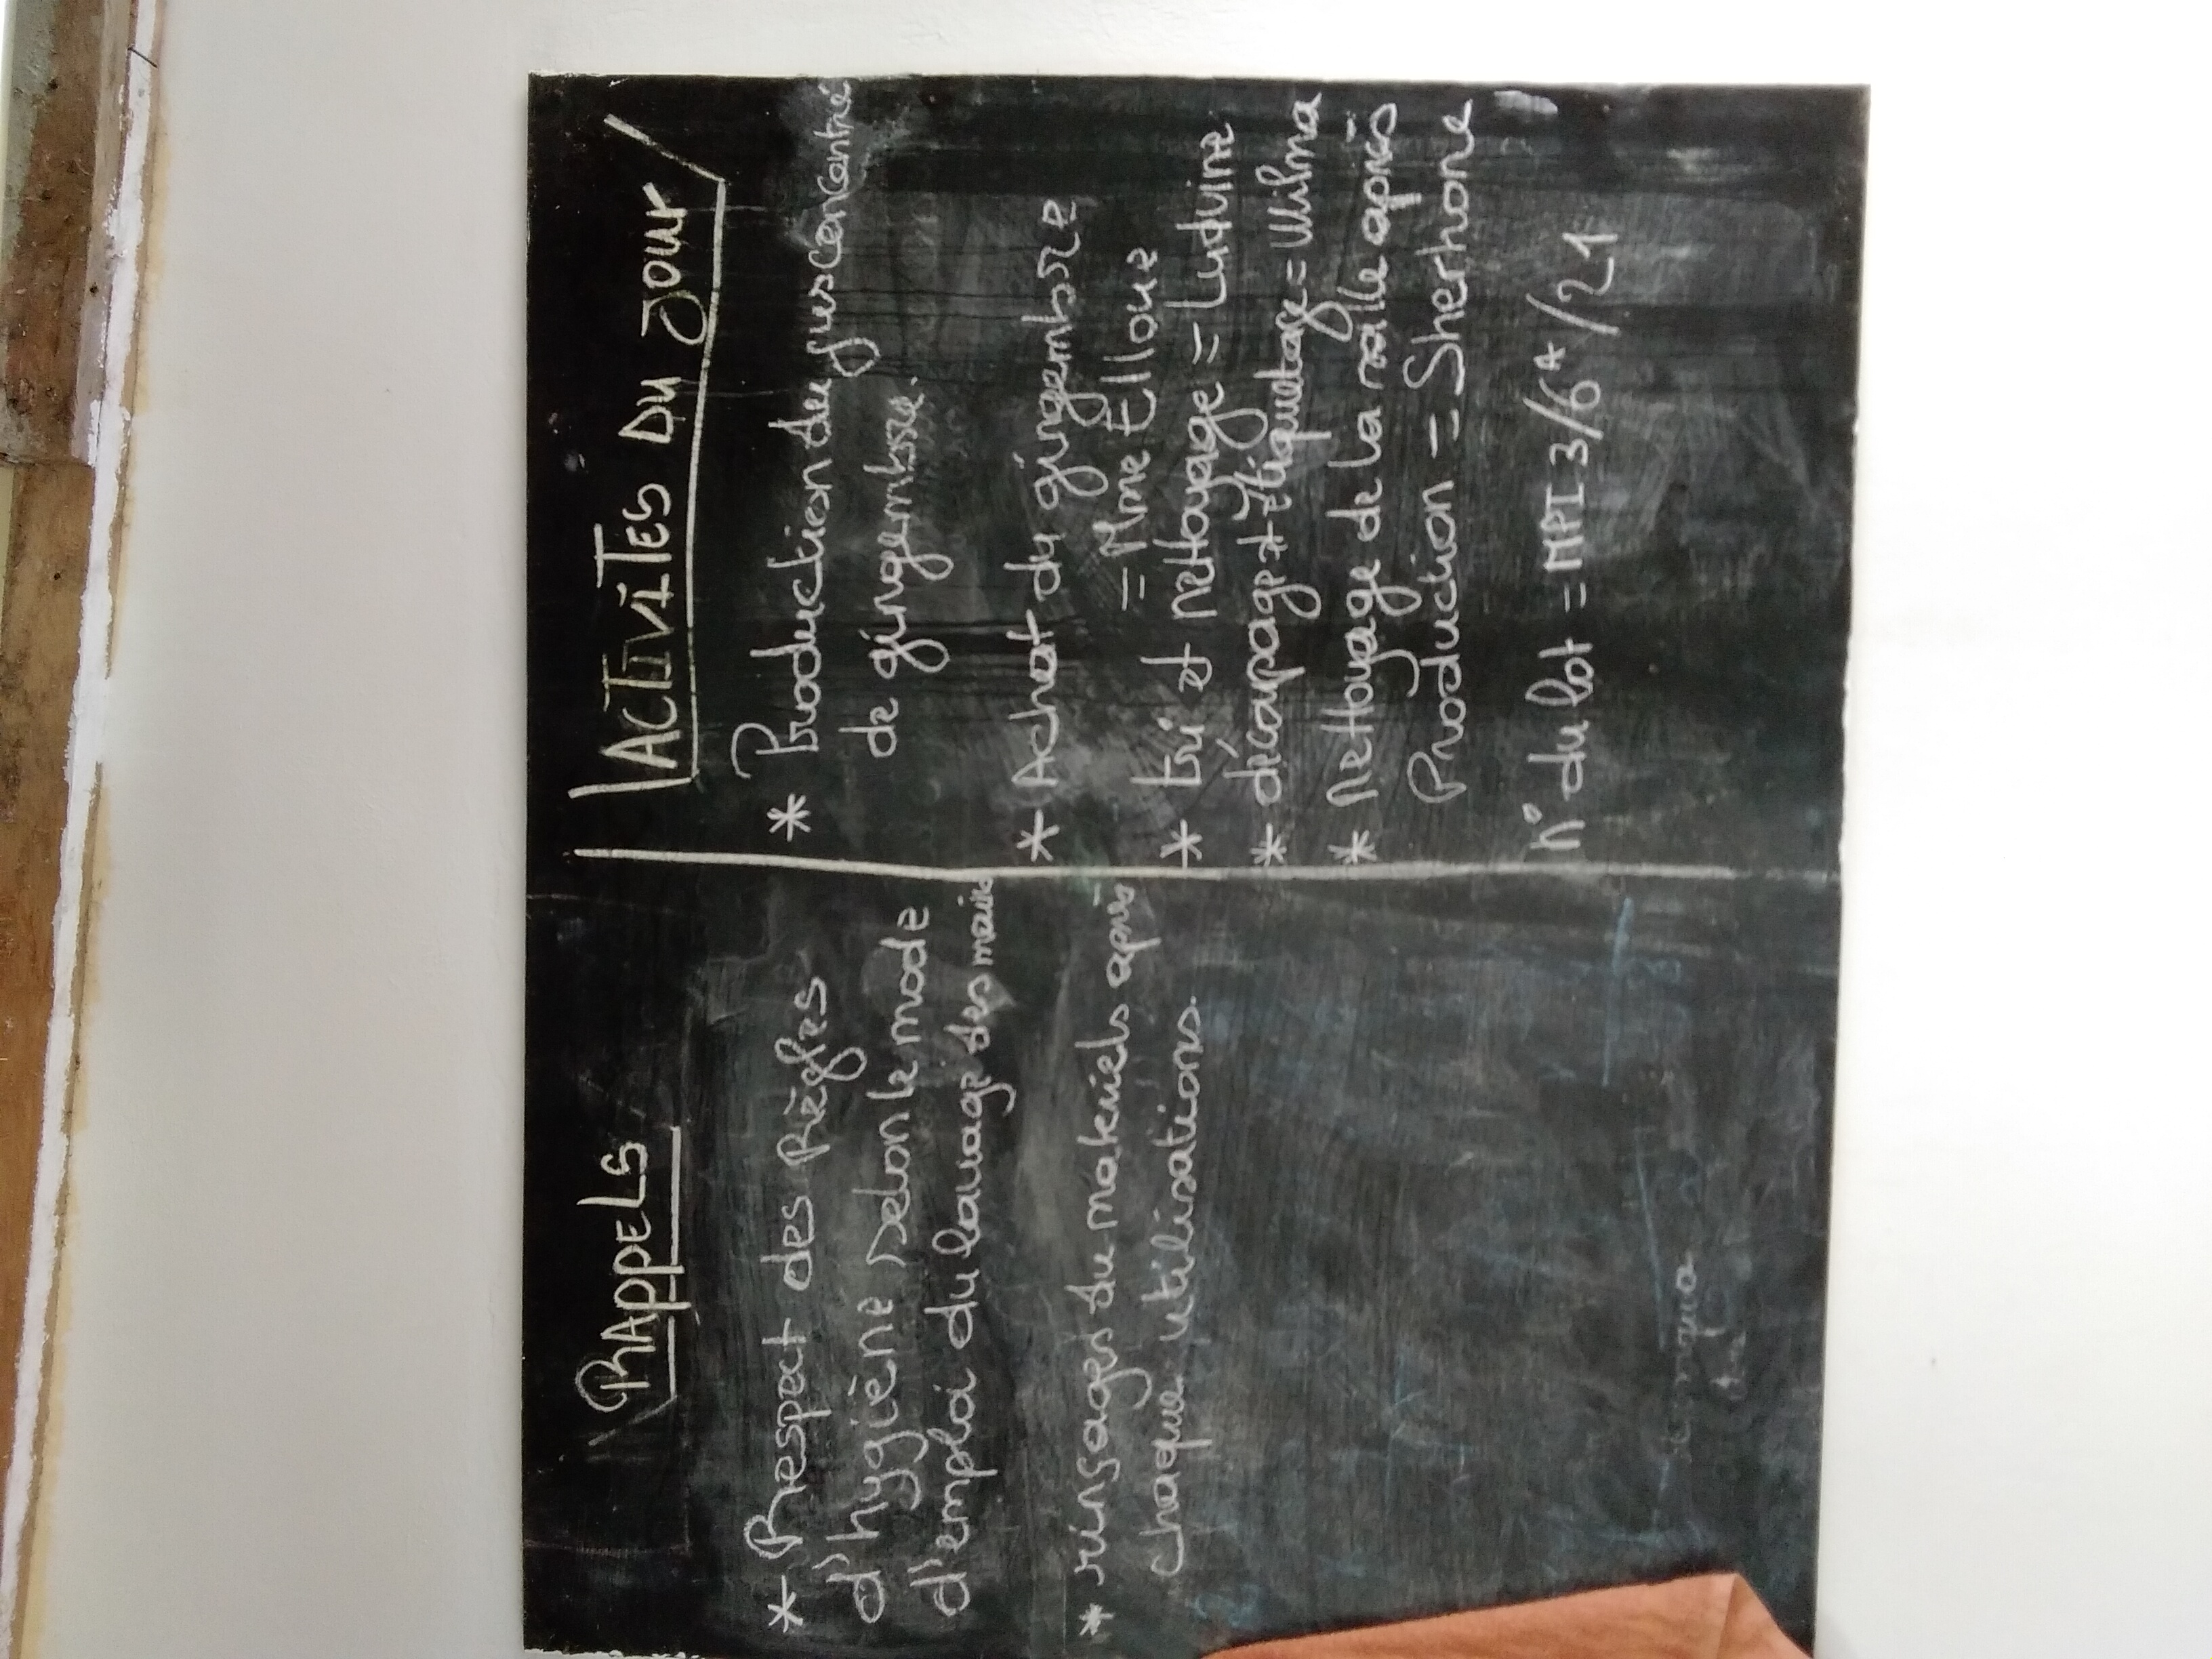 RAPPELS
* Respect des Règles
d'hygiène selon le mode
d'emploi du lavage des mains
* rinsages du materiels après
chaque utilisations.
ACTIVITES DU JOUR
* Production du jus concentré
de gingembre.
* Achat du gingembre
= Mme Ellone
* tri et nettoyage = Ludvine
* décapage et étiquetage = Wilma
* Nettoyage de la salle après
Production = Sherhone
N° du lot = MPI 3/6A/21